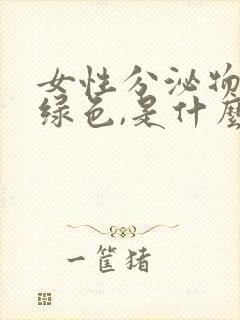 女性分泌物
绿色,是什麼
一筐猪